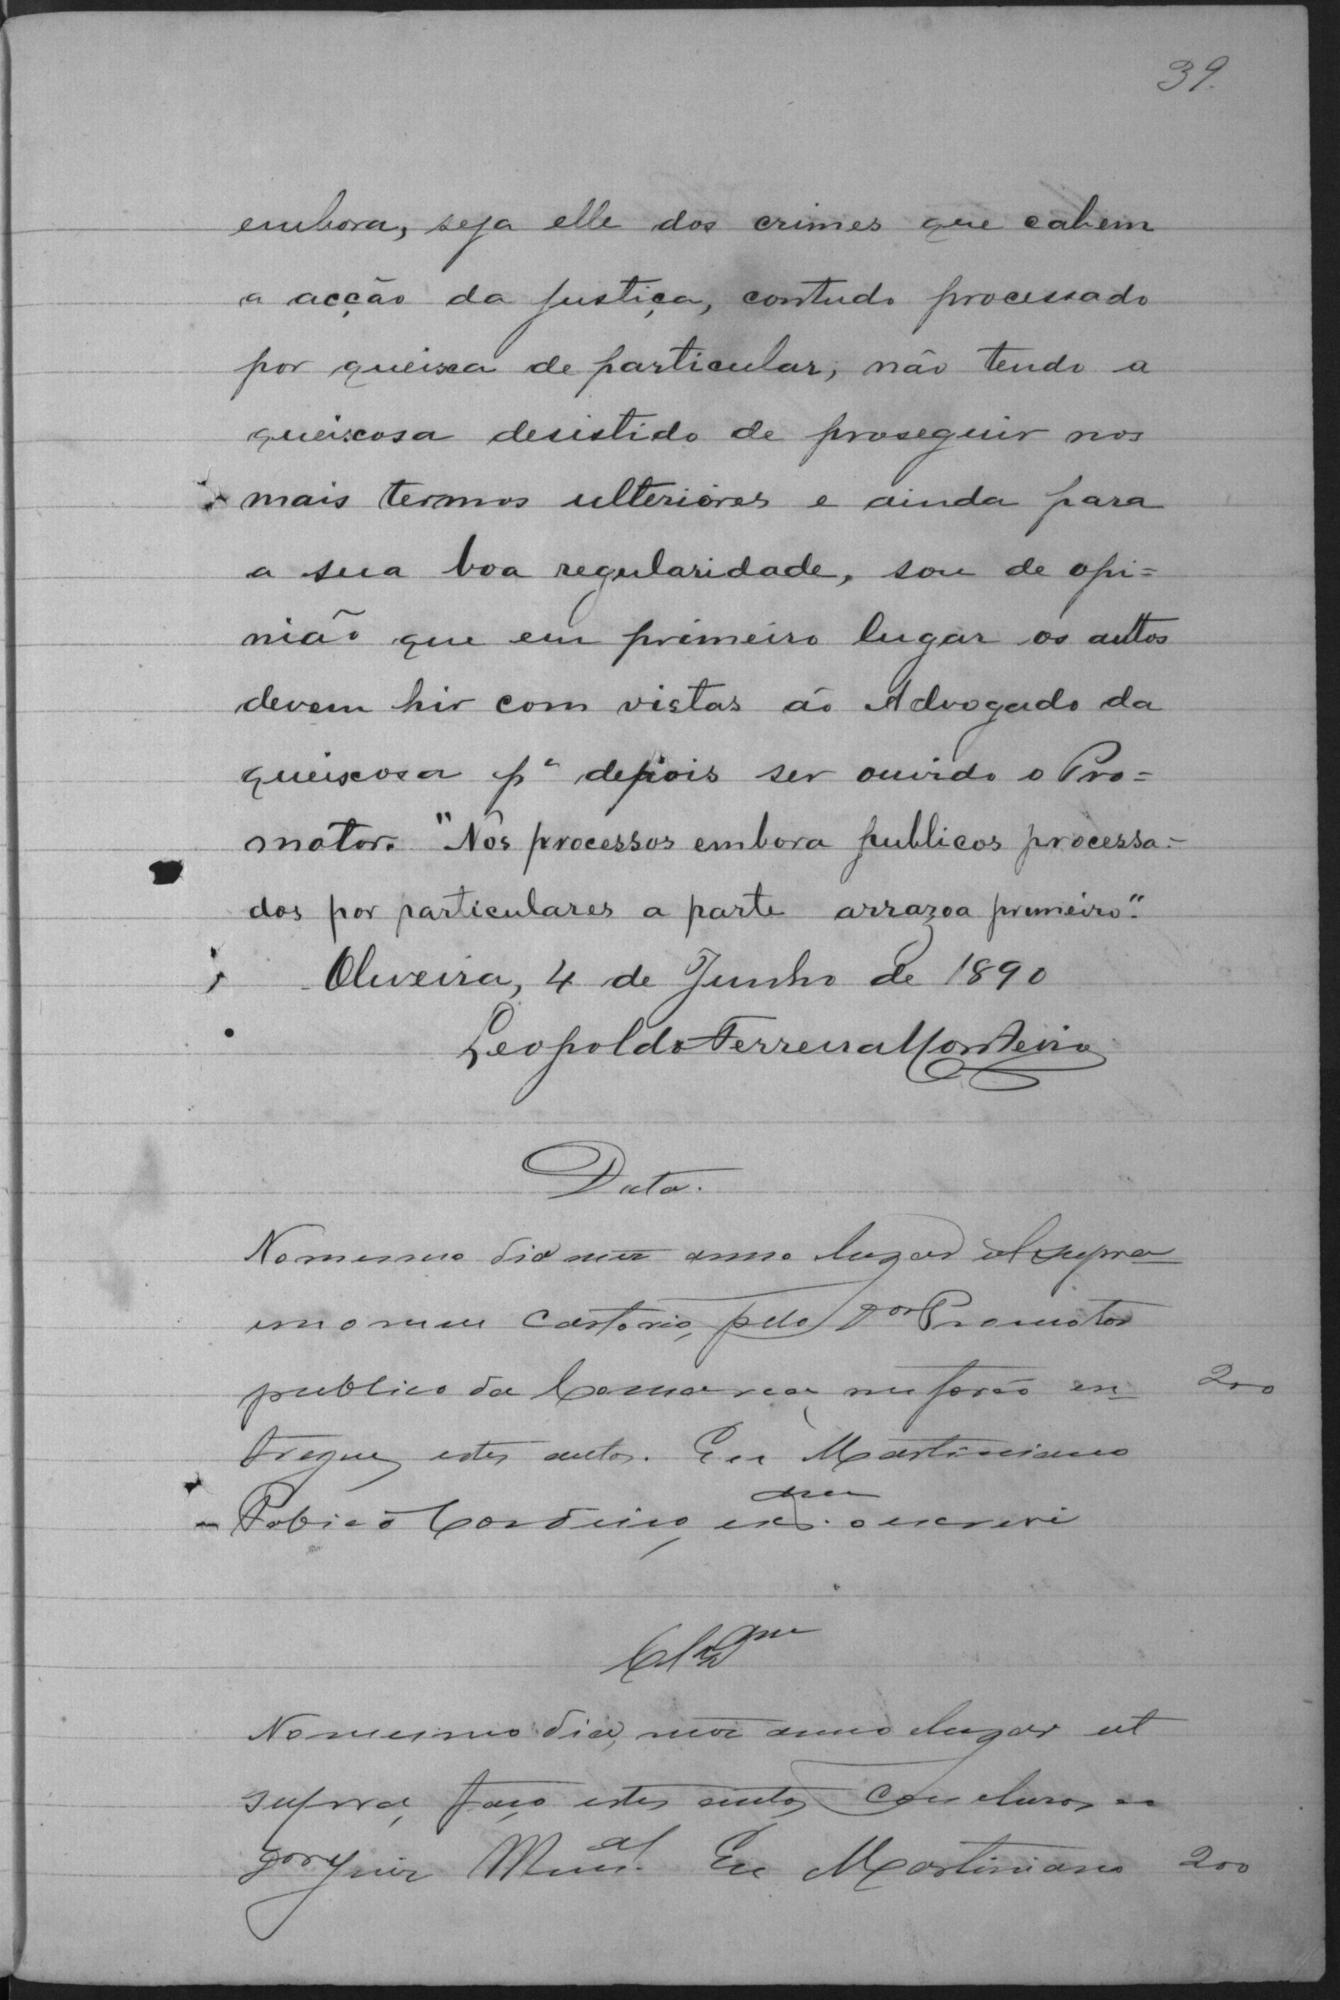 39.
embora, seja elle dos crimes que cabem
a acção da justiça, contudo processado
por queixa de particular, não tendo a
queixosa desistido de proseguir nos
mais termos ulteriores e ainda para
a sua boa regularidade, sou de opi=
nião que em primeiro lugar os autos
devem hir com vistas áo Advogado da
queixosa pª depois ser ouvido o Pro=
motor. "Nos processos embora publicos processa=
dos por particulares a parte arrazoa primeiro".
Oliveira, 4 de Junho de 1890
Leopoldo Ferreira Monteiro
Data.
No mesmo dia mez anno lugar ut supra
em o meu cartorio, pelo Dor Promotor
publico da Comarca, me forão en= 200
tregues estes autos. Eu Martiniano
Cordeiro, o escrevi
Clsam
No mesmo dia, mez anno lugar ut
supra, faço estes autos conclusos ao
Dor Juiz Mual. Eu Martiniano 200